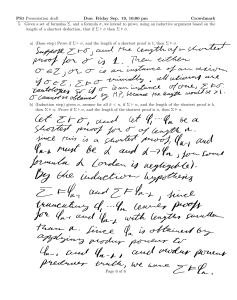 PS1 Presentation draft Due: Friday Sep. 10, 10:00 pm Crowdmark
5. Given a set of formulas Σ, and a formula σ, we intend to prove, using an inductive argument based on the
length of a shortest deduction, that if Σ ⊢ σ then Σ ⊨ σ.
a) (Base step) Prove if Σ ⊢ σ, and the length of a shortest proof is 1, then Σ ⊨ σ.
Suppose Σ ⊢ σ, and the length of a shortest
proof for σ is 1. Then either
σ ∈ Σ, or σ is an instance of an axiom
if σ ∈ Σ, Σ ⊨ σ trivially. all axioms are
tautologies so if σ is an instance of one, Σ ⊨ σ
σ cannot be obtained by MP, because the length would be >1.
b) (Induction step) given n, assume for all k < n, if Σ ⊢ σ, and the length of the shortest proof is k,
then Σ ⊨ σ. Prove if Σ ⊢ σ, and the length of the shortest proof is n, then Σ ⊨ σ.
Let Σ ⊢ σ, and let φ₁...φₙ be a
shortest proof for σ of length n.
since this is a shortest proof, φₙ₋₁ and
φₙ₋₂ must be α and α → φₙ, for some
formula α (order is negligible).
By the induction hypothesis
Σ ⊨ φₙ₋₁ and Σ ⊨ φₙ₋₂, since
truncating φ₁...φₙ leaves proofs
for φₙ₋₁ and φₙ₋₂ with lengths smaller
than n. Since φₙ is obtained by
applying modus ponens to
φₙ₋₁, and φₙ₋₂, and modus ponens
preserves truth, we have Σ ⊨ φₙ.
Page 6 of 6